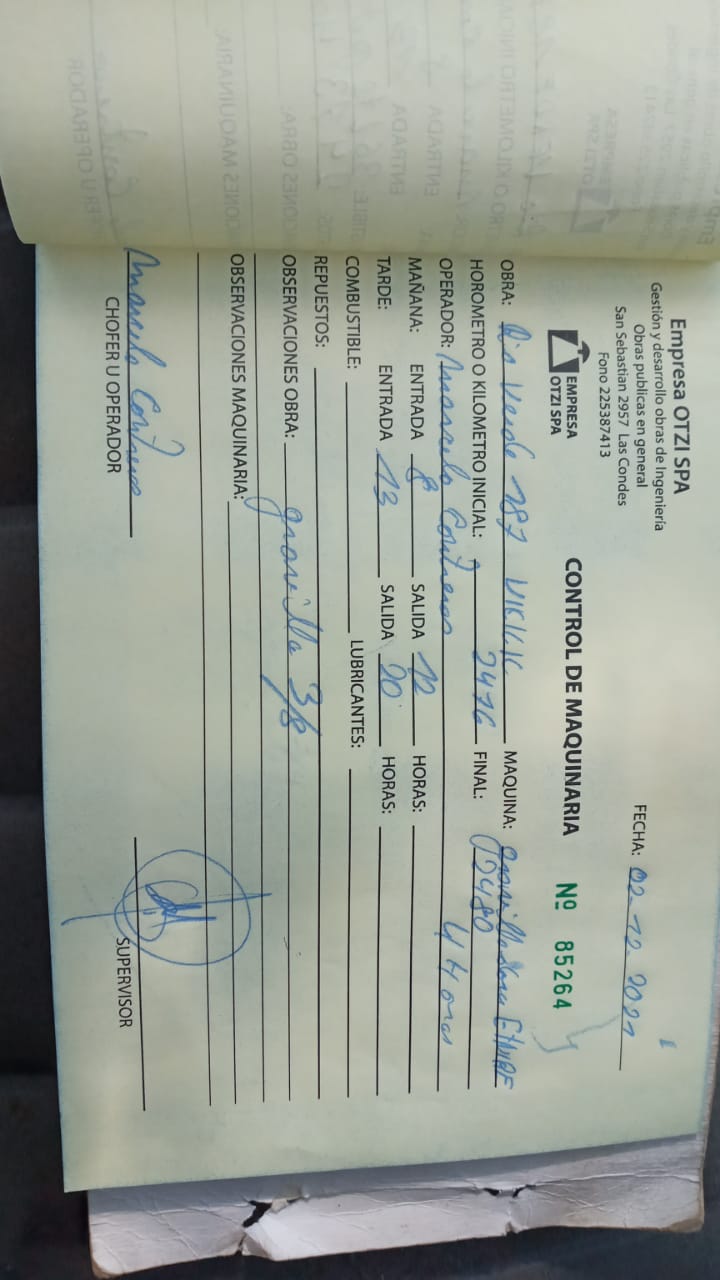 Empresa OTZI SPA
Gestión y desarrollo obras de Ingeniería
Obras publicas en general
San Sebastian 2957 Las Condes
Fono 225387413
FECHA: 02-12-2021
EMPRESA
OTZI SPA
CONTROL DE MAQUINARIA
Nº 85264
OBRA: Rio Verde 187 MAQUINA: gravilladora
HOROMETRO O KILOMETRO INICIAL: 2476 FINAL: 2480
OPERADOR: Marcelo Contreras 4 Horas
MAÑANA: ENTRADA 8 SALIDA 12 HORAS:
TARDE: ENTRADA 13 SALIDA 20 HORAS:
COMBUSTIBLE: LUBRICANTES:
REPUESTOS:
OBSERVACIONES OBRA: gravilla 3/8
OBSERVACIONES MAQUINARIA:
Marcelo Contreras
CHOFER U OPERADOR
SUPERVISOR